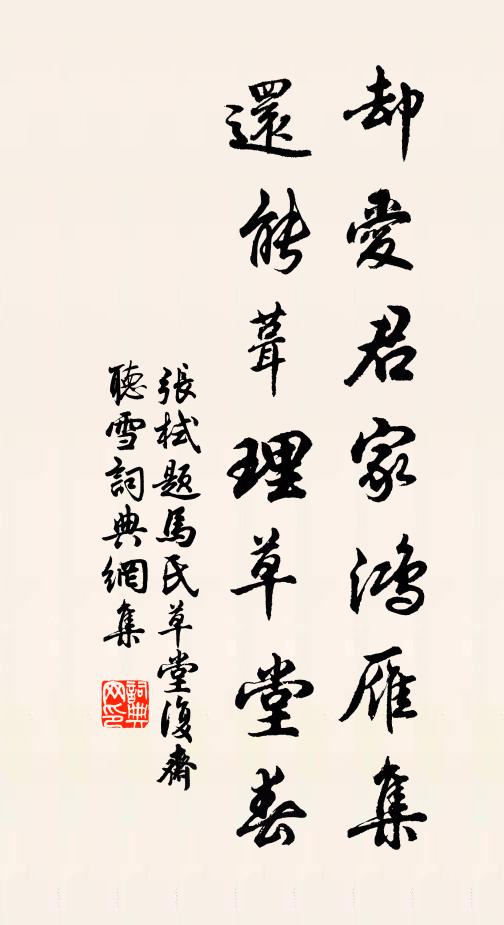 却愛君家鴻雁集
還能葺理草堂春
張栻題馬氏草堂復齋
聽雪詞典網集
詞典網印